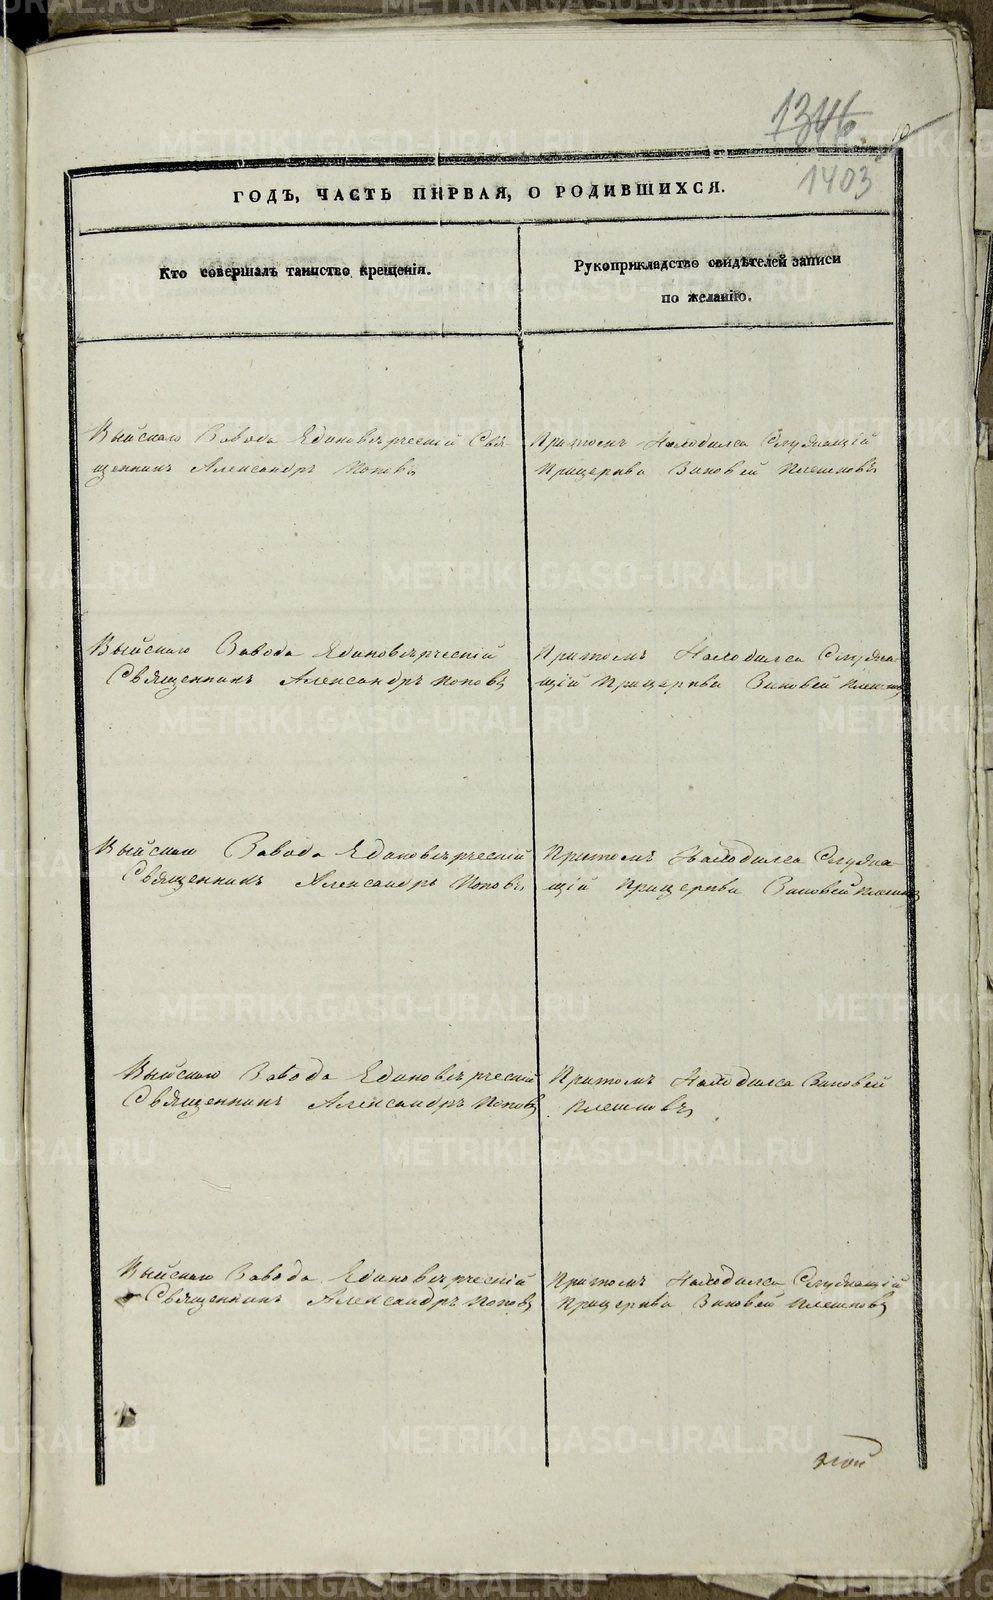 1346
10
1403
ГОДЪ, ЧАСТЬ ПЕРВАЯ, О РОДИВШИХСЯ.
Кто совершалъ таинство крещенія.
Рукоприкладство свидѣтелей записи
по желанію.
Выйскаго Завода Единовѣрческій Свя
щенникъ Александръ Поповъ
Притомъ Находился Служащій
Прицеркви Зиновей Плешковъ
Выйскаго Завода Единовѣрческій
Священникъ Александръ Поповъ
Притомъ Находился Служа
щій Прицеркви Зиновей Плешковъ
Выйскаго Завода Единовѣрческій
Священникъ Александръ Поповъ
Притомъ Находился Служа
щій Прицеркви Зиновей Плешковъ
Выйскаго Завода Единовѣрческій
Священникъ Александръ Поповъ
Притомъ Находился Зиновей
Плешковъ
Выйскаго Завода Единовѣрческій
Священникъ Александръ Поповъ
Притомъ Находился Служащій
Прицеркви Зиновей Плешковъ
METRIKI.GASO-URAL.RU